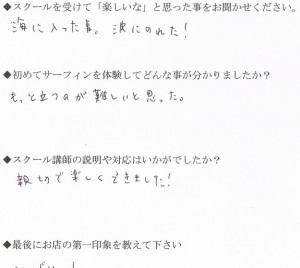 ◆スクールを受けて「楽しいな」と思った事をお聞かせください。
海に入った事。波にのれた!
◆初めてサーフィンを体験してどんな事が分かりましたか?
もっと立つのが難しいと思った。
◆スクール講師の説明や対応はいかがでしたか?
親切で楽しくできました!
◆最後にお店の第一印象を教えて下さい